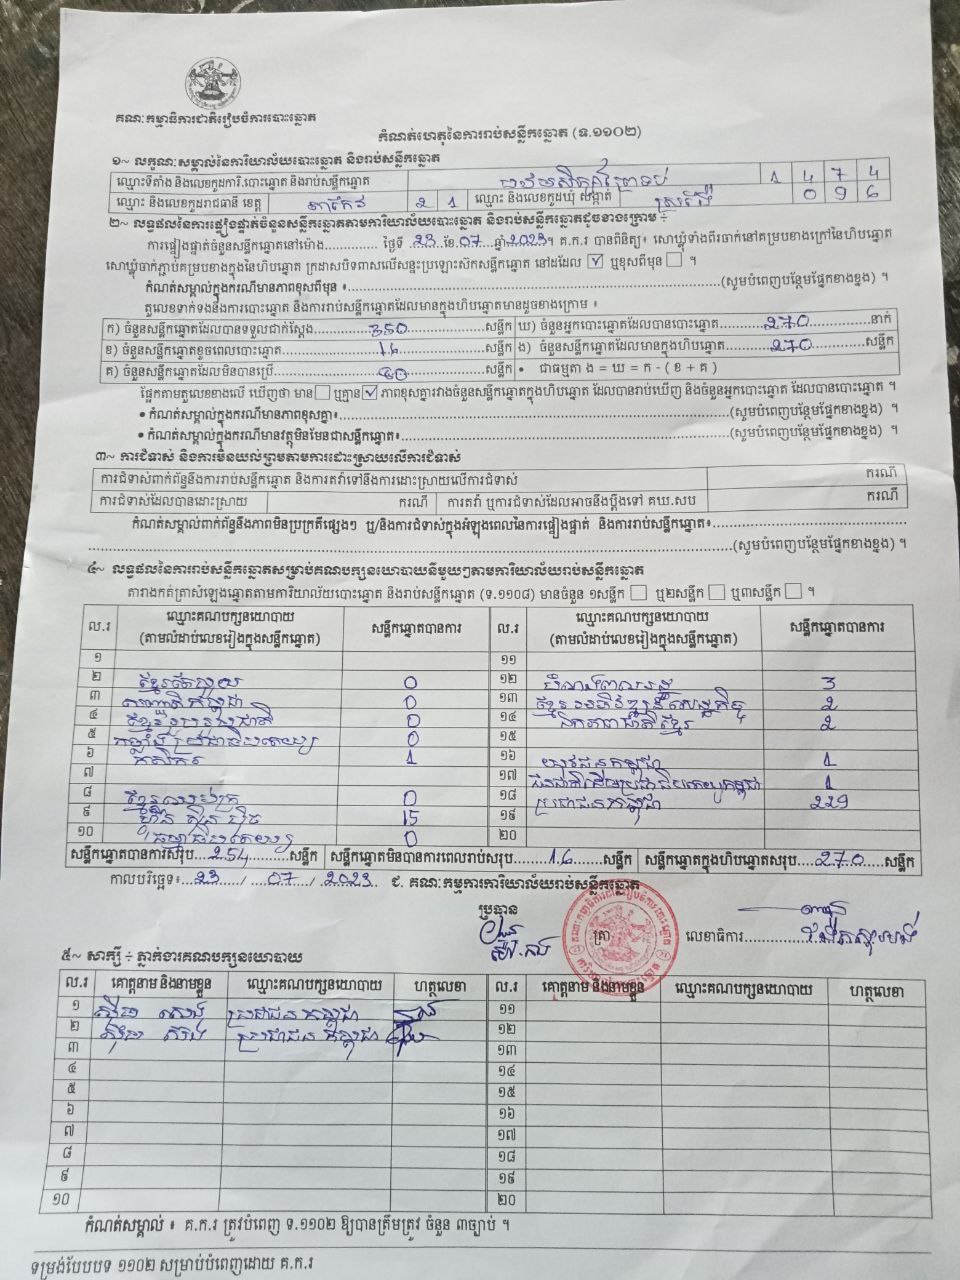 គណៈកម្មាធិការជាតិរៀបចំការបោះឆ្នោត
កំណត់ហេតុនៃការរាប់សន្លឹកឆ្នោត (ទ.១១០២)
១~ លក្ខណៈសម្គាល់នៃការិយាល័យបោះឆ្នោត និងរាប់សន្លឹកឆ្នោត
ឈ្មោះទីតាំង និងលេខកូដការិ.បោះឆ្នោត និងរាប់សន្លឹកឆ្នោត 1 4 7 4
ឈ្មោះ និងលេខកូដរាជធានី ខេត្ត តាកែវ 2 1 ឈ្មោះ និងលេខកូដឃុំ សង្កាត់ 0 9 6
២~ លទ្ធផលនៃការផ្ទៀងផ្ទាត់ចំនួនសន្លឹកឆ្នោតតាមការិយាល័យបោះឆ្នោត និងរាប់សន្លឹកឆ្នោតដូចខាងក្រោម ÷
ការផ្ទៀងផ្ទាត់ចំនួនសន្លឹកឆ្នោតនៅម៉ោង............. ថ្ងៃទី 23 ខែ 07 ឆ្នាំ 2023 ។ គ.ក.រ បានពិនិត្យ៖ សោឃ្លុំទាំងពីរចាក់នៅគម្របខាងក្រៅនៃហិបឆ្នោត
សោឃ្លុំចាក់ភ្ជាប់គម្របខាងក្នុងនៃហិបឆ្នោត ក្រដាសបិទពាសលើសន្ទះប្រឡោះស៊កសន្លឹកឆ្នោត នៅដដែល ☑ ឬខុសពីមុន ☐ ។
កំណត់សម្គាល់ក្នុងករណីមានភាពខុសពីមុន ៖ (សូមបំពេញបន្ថែមផ្នែកខាងខ្នង) ។
តួលេខទាក់ទងនឹងការបោះឆ្នោត និងការរាប់សន្លឹកឆ្នោតដែលមានក្នុងហិបឆ្នោតមានដូចខាងក្រោម ៖
ក) ចំនួនសន្លឹកឆ្នោតដែលបានទទួលជាក់ស្តែង 350 សន្លឹក ឃ) ចំនួនអ្នកបោះឆ្នោតដែលបានបោះឆ្នោត 270 នាក់
ខ) ចំនួនសន្លឹកឆ្នោតខូចពេលបោះឆ្នោត 16 សន្លឹក ង) ចំនួនសន្លឹកឆ្នោតដែលមានក្នុងហិបឆ្នោត 270 សន្លឹក
គ) ចំនួនសន្លឹកឆ្នោតដែលមិនបានប្រើ សន្លឹក • ជាធម្មតា ង = ឃ = ក - ( ខ + គ )
ផ្អែកតាមតួលេខខាងលើ ឃើញថា មាន ☐ ឬគ្មាន ☑ ភាពខុសគ្នារវាងចំនួនសន្លឹកឆ្នោតក្នុងហិបឆ្នោត ដែលបានរាប់ឃើញ និងចំនួនអ្នកបោះឆ្នោត ដែលបានបោះឆ្នោត ។
• កំណត់សម្គាល់ក្នុងករណីមានភាពខុសគ្នា៖ (សូមបំពេញបន្ថែមផ្នែកខាងខ្នង) ។
• កំណត់សម្គាល់ក្នុងករណីមានវត្ថុមិនមែនជាសន្លឹកឆ្នោត៖ (សូមបំពេញបន្ថែមផ្នែកខាងខ្នង) ។
៣~ ការជំទាស់ និងការមិនយល់ព្រមតាមការដោះស្រាយលើការជំទាស់
ការជំទាស់ពាក់ព័ន្ធនឹងការរាប់សន្លឹកឆ្នោត និងការតវ៉ាទៅនឹងការដោះស្រាយលើការជំទាស់ ករណី
ការជំទាស់ដែលបានដោះស្រាយ ករណី ការតវ៉ា ឬការជំទាស់ដែលអាចនឹងប្តឹងទៅ គឃ.សប ករណី
កំណត់សម្គាល់ពាក់ព័ន្ធនឹងភាពមិនប្រក្រតីផ្សេងៗ ឬ/និងការជំទាស់ក្នុងអំឡុងពេលនៃការផ្ទៀងផ្ទាត់ និងការរាប់សន្លឹកឆ្នោត៖
(សូមបំពេញបន្ថែមផ្នែកខាងខ្នង) ។
៤~ លទ្ធផលនៃការរាប់សន្លឹកឆ្នោតសម្រាប់គណបក្សនយោបាយនីមួយៗតាមការិយាល័យរាប់សន្លឹកឆ្នោត
តារាងកត់ត្រាសំឡេងឆ្នោតតាមការិយាល័យបោះឆ្នោត និងរាប់សន្លឹកឆ្នោត (ទ.១១០៨) មានចំនួន ១សន្លឹក ☐ ឬ២សន្លឹក ☐ ឬ៣សន្លឹក ☐ ។
ល.រ ឈ្មោះគណបក្សនយោបាយ (តាមលំដាប់លេខរៀងក្នុងសន្លឹកឆ្នោត) សន្លឹកឆ្នោតបានការ ល.រ ឈ្មោះគណបក្សនយោបាយ (តាមលំដាប់លេខរៀងក្នុងសន្លឹកឆ្នោត) សន្លឹកឆ្នោតបានការ
១ ១១
២ ខ្មែរតែមួយ 0 ១២ 3
៣ សញ្ជាតិកម្ពុជា 0 ១៣ ខ្មែរអភិវឌ្ឍន៍សេដ្ឋកិច្ច 2
៤ ខ្មែររួបរួមជាតិ 0 ១៤ ឯកភាពជាតិខ្មែរ 2
៥ កម្លាំងប្រជាធិបតេយ្យ 0 ១៥
៦ កសិករ 1 ១៦ យុវជនកម្ពុជា 1
៧ ១៧ 1
៨ ខ្មែរឈប់ក្រ 0 ១៨ ប្រជាជនកម្ពុជា 229
៩ ហ៊្វុនស៊ិនប៉ិច 15 ១៩
១០ ធម្មាធិបតេយ្យ 0 ២០
សន្លឹកឆ្នោតបានការសរុប 254 សន្លឹក សន្លឹកឆ្នោតមិនបានការពេលរាប់សរុប 16 សន្លឹក សន្លឹកឆ្នោតក្នុងហិបឆ្នោតសរុប 270 សន្លឹក
កាលបរិច្ឆេទ៖ 23 / 07 / 2023 ជ. គណៈកម្មការការិយាល័យរាប់សន្លឹកឆ្នោត
ប្រធាន
ត្រា លេខាធិការ
៥~ សាក្សី ÷ ភ្នាក់ងារគណបក្សនយោបាយ
ល.រ គោត្តនាម និងនាមខ្លួន ឈ្មោះគណបក្សនយោបាយ ហត្ថលេខា ល.រ គោត្តនាម និងនាមខ្លួន ឈ្មោះគណបក្សនយោបាយ ហត្ថលេខា
១ ប្រជាជនកម្ពុជា ១១
២ ប្រជាជនកម្ពុជា ១២
៣ ១៣
៤ ១៤
៥ ១៥
៦ ១៦
៧ ១៧
៨ ១៨
៩ ១៩
១០ ២០
កំណត់សម្គាល់ ៖ គ.ក.រ ត្រូវបំពេញ ទ.១១០២ ឱ្យបានត្រឹមត្រូវ ចំនួន ៣ច្បាប់ ។
ទម្រង់បែបបទ ១១០២ សម្រាប់បំពេញដោយ គ.ក.រ